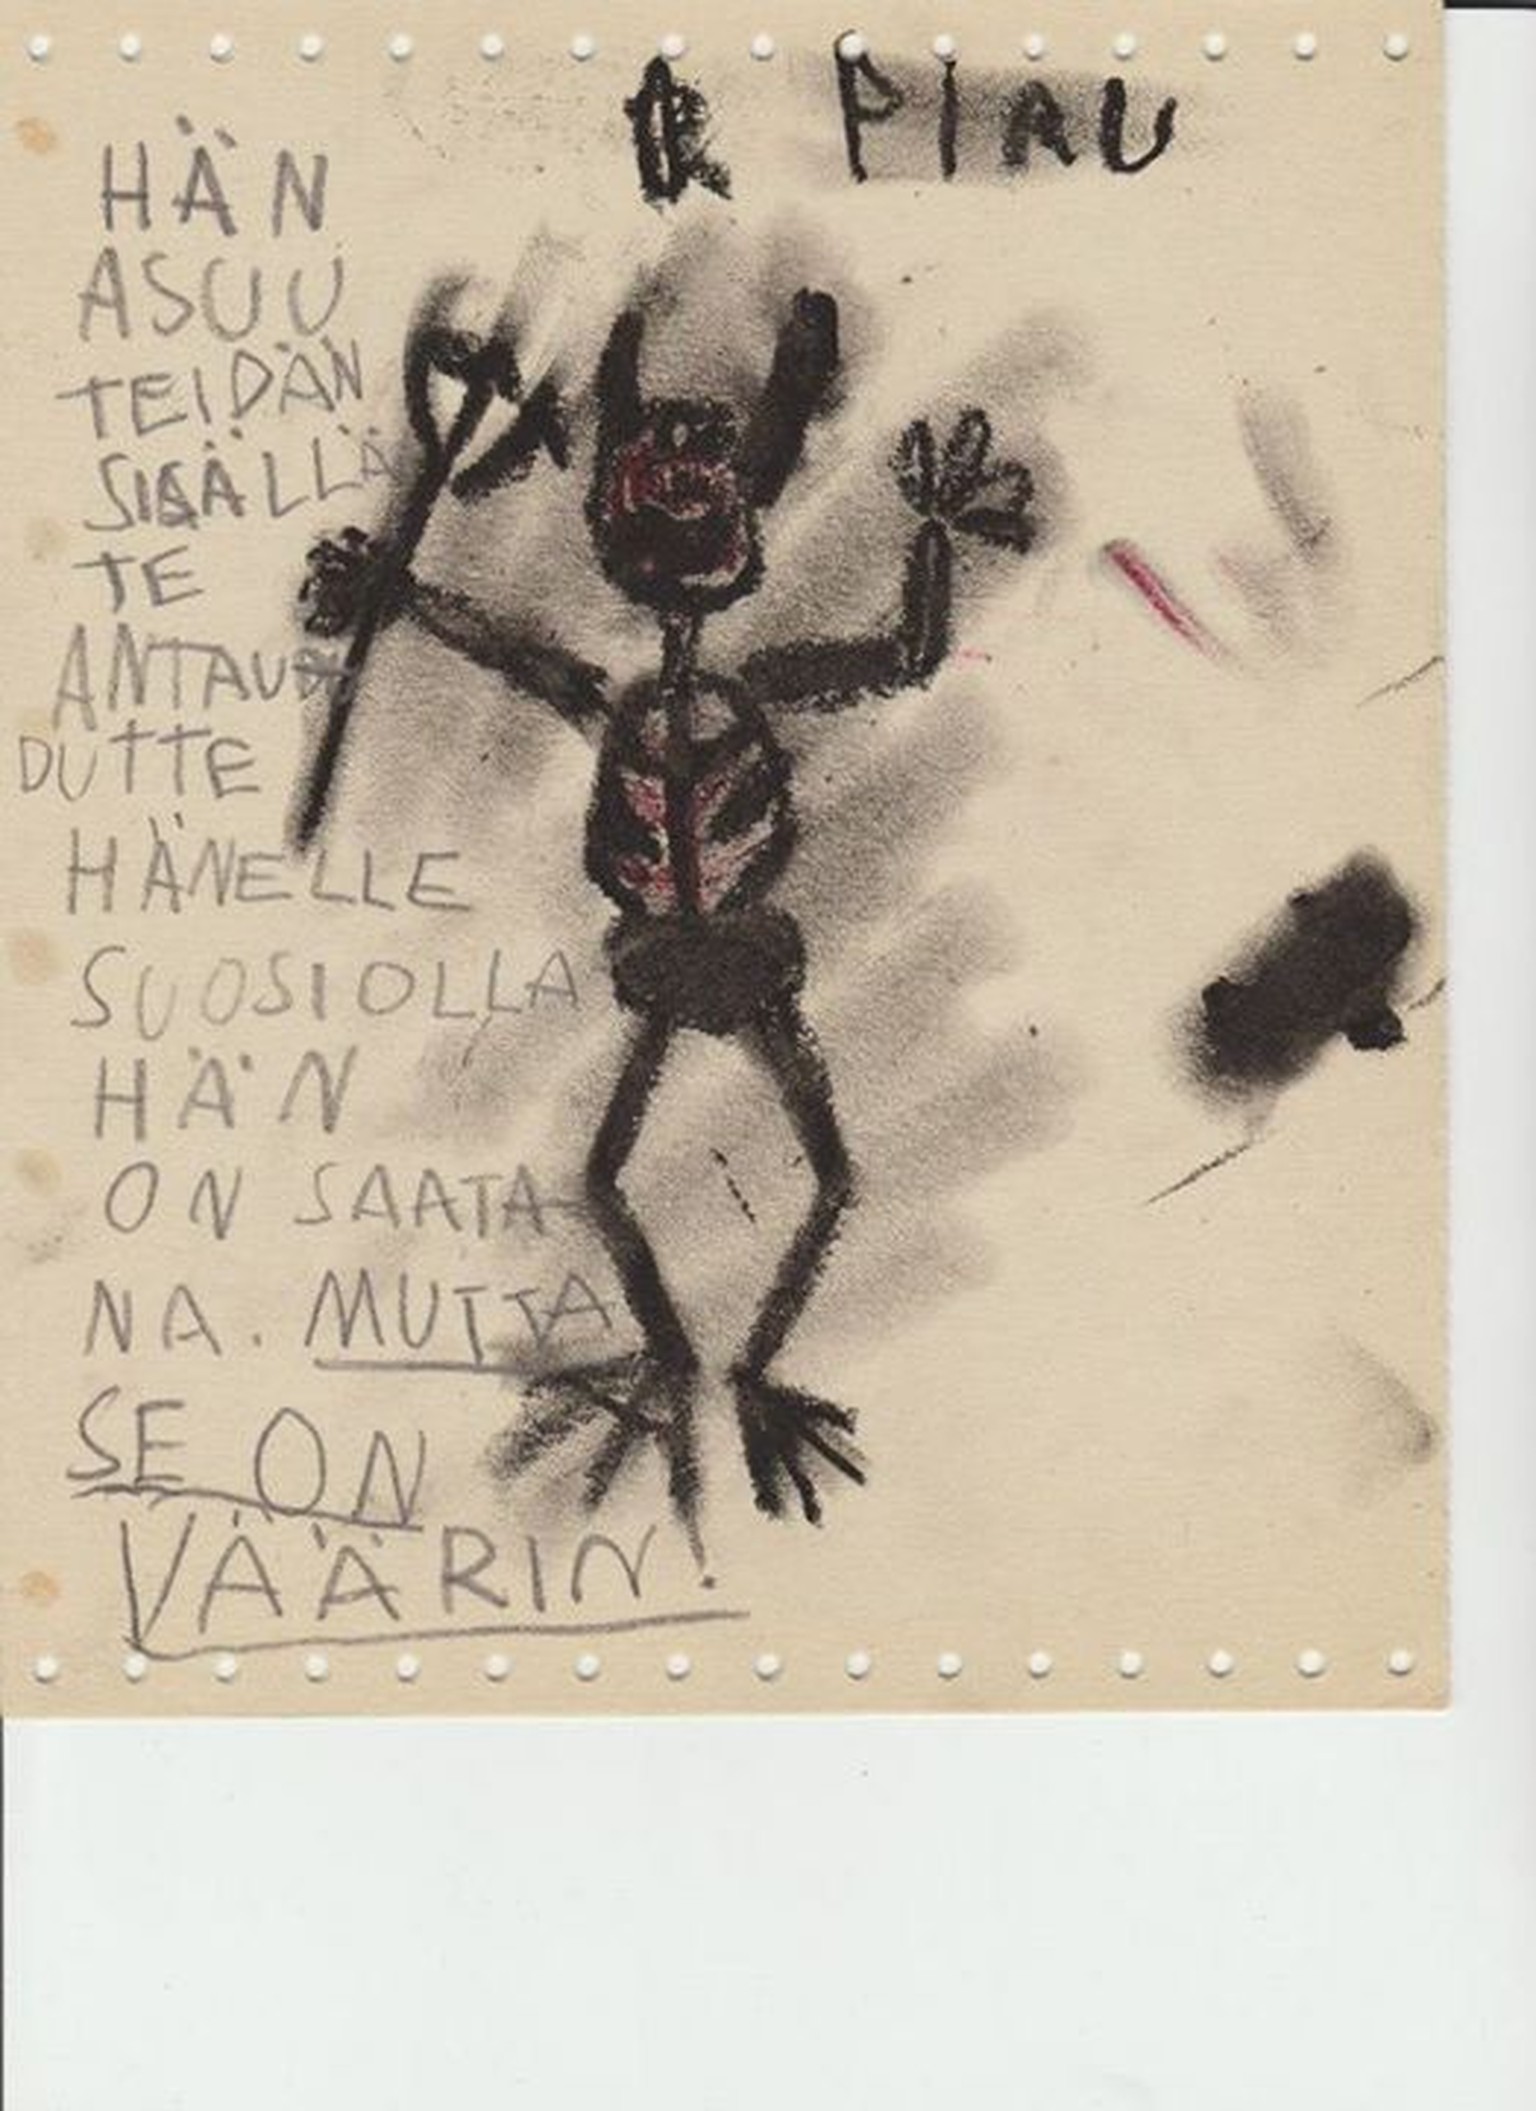 PIRU
HÄN
ASUU
TEIDÄN
SISÄLLÄ
TE
ANTAU
DUTTE
HÄNELLE
SUOSIOLLA
HÄN
ON SAATA-
NA. MUTTA
SE ON
VÄÄRIN.